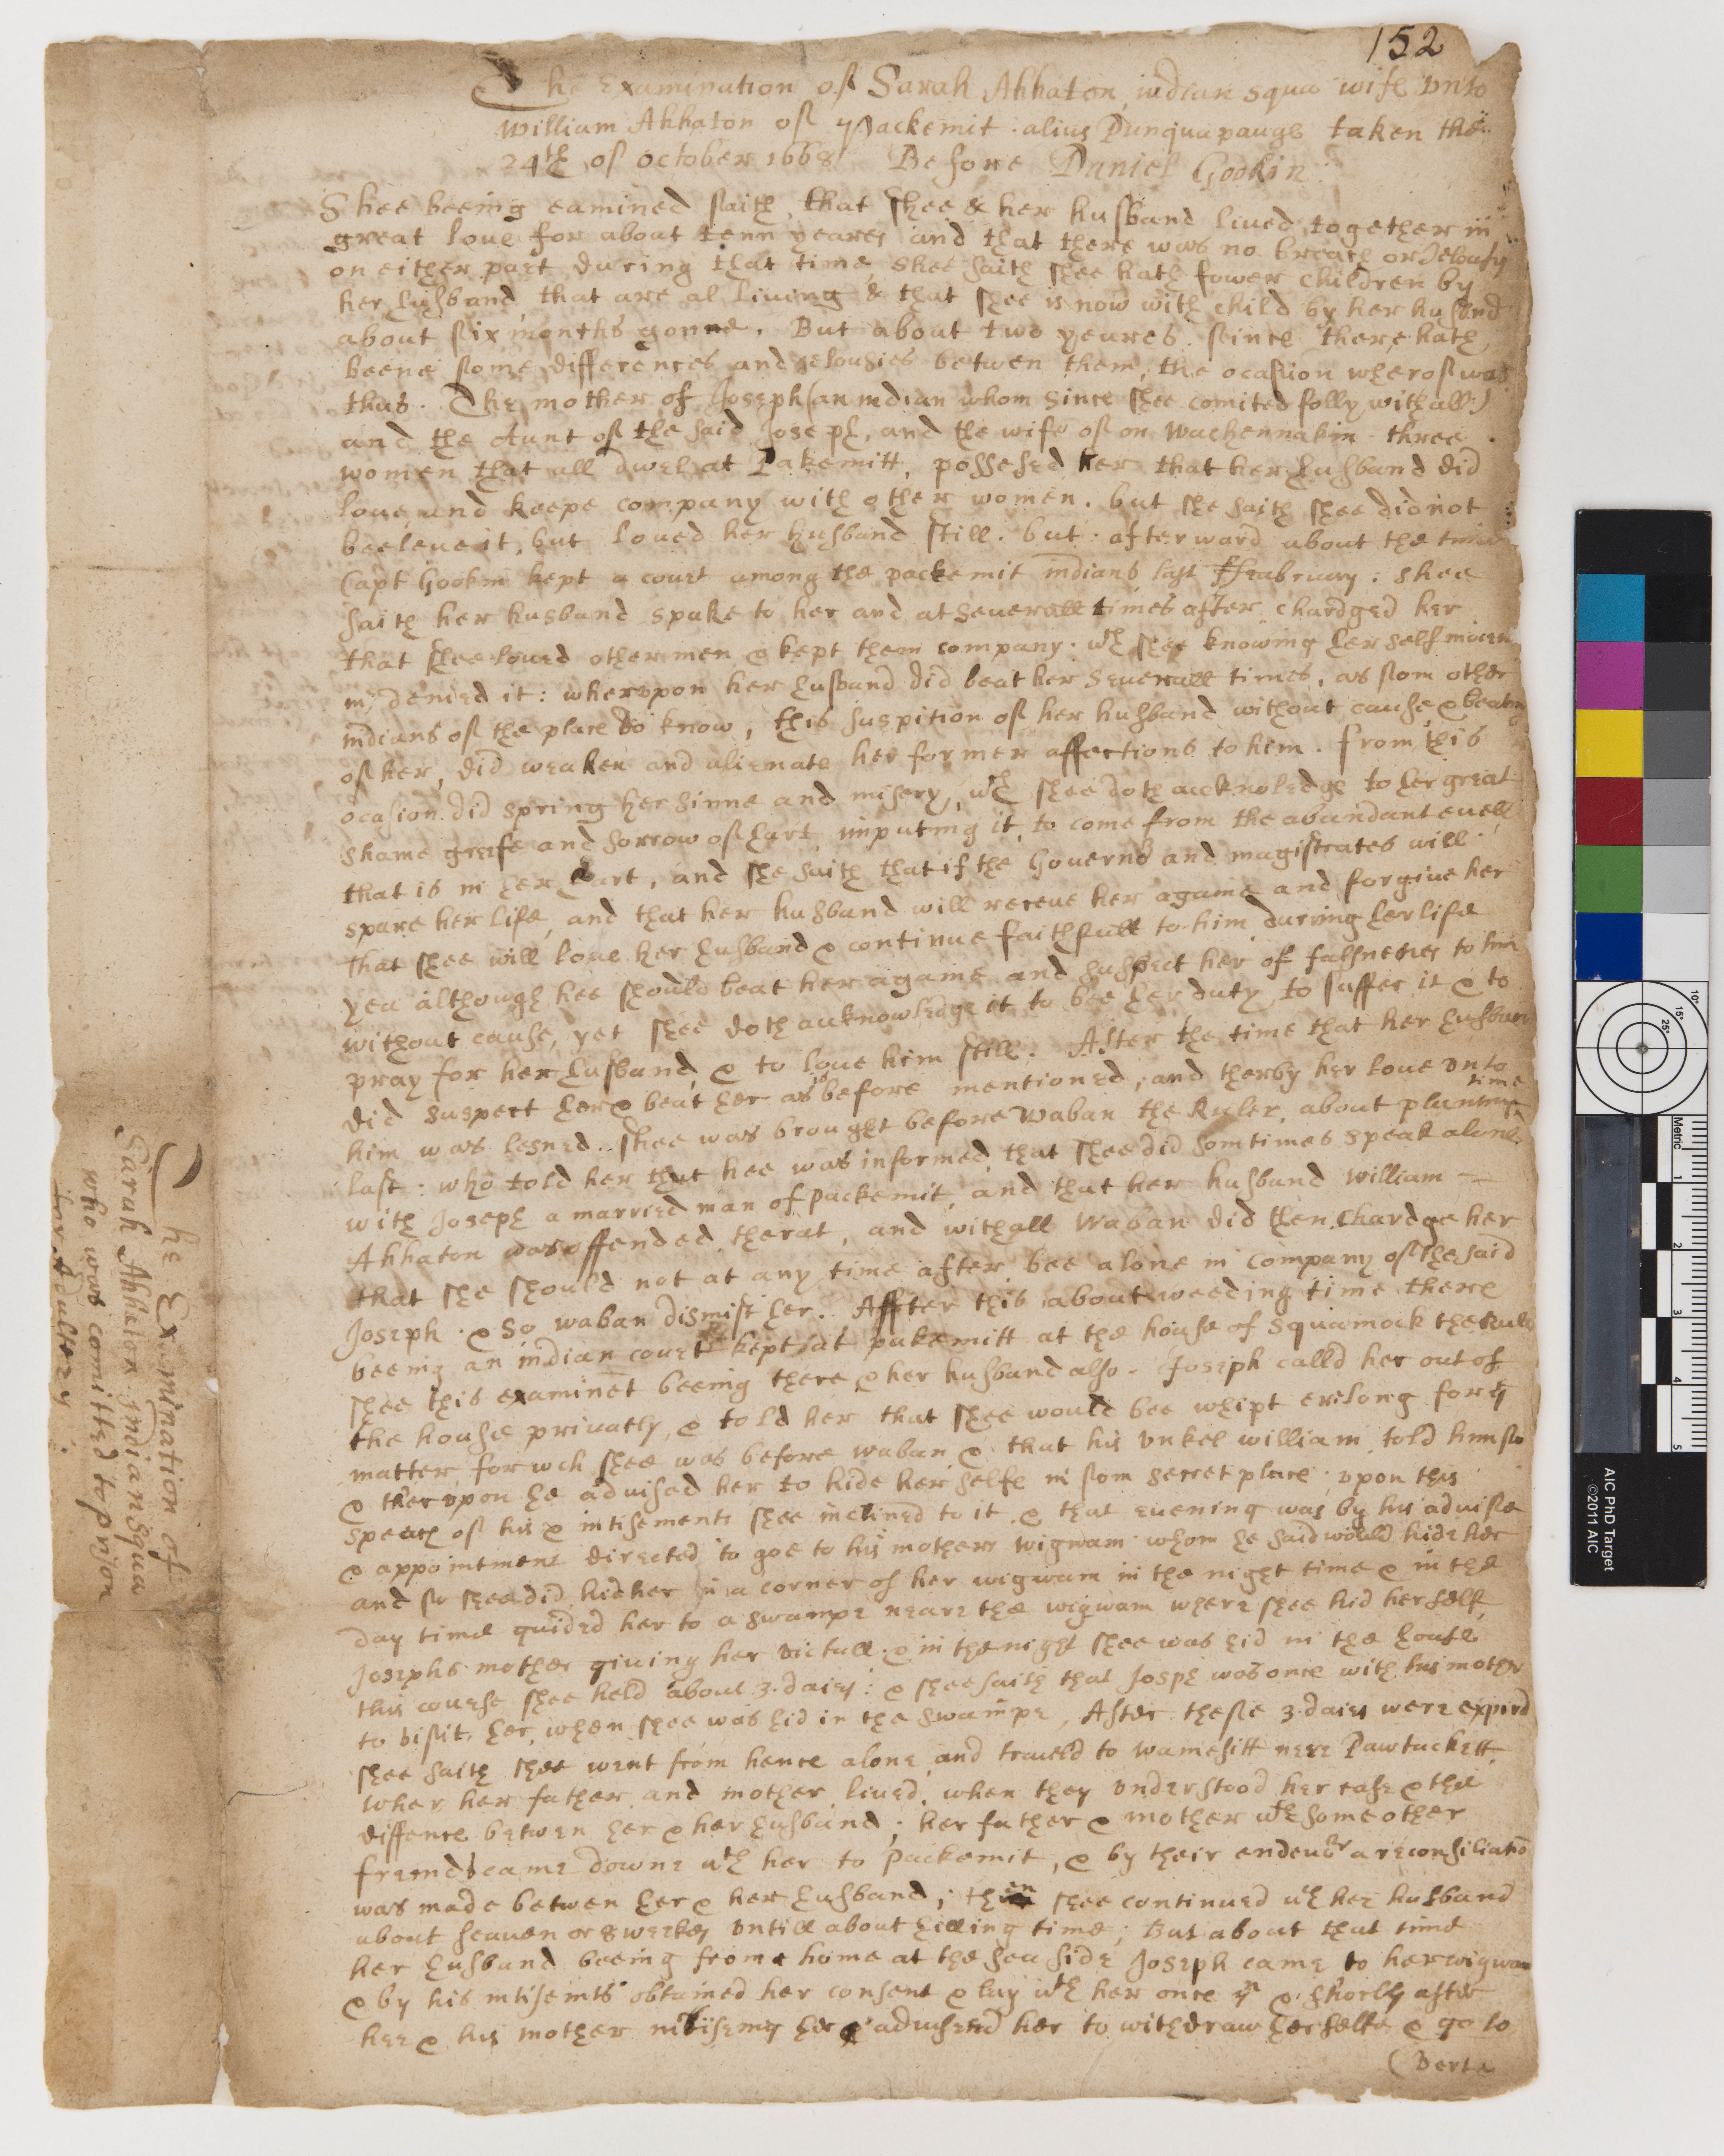 152
The Examination of Sarah Ahhaton, indian squa wife vnto
William Ahhaton of Packemit alius Punquapauge taken the
24th of October 1668 Before Daniel Gookin:
Shee beeing eamined saith, that shee & her husband liued together in
great loue for about tenn yeares and that there was no breach or Jelousy
on either part during that time, shee saith shee hath fower children by
her husband, that are al liuing & that shee is now with child by her husband
about six months gonne. But about two yeares since there hath
beene some differences and jelousies betwen them, the ocasion wherof was
thus. The mother of Joseph (an indian whom since shee comited folly withall)
and the Aunt of the said Joseph, and the wife of on Wachennakin three
women that all dwel at Pakemitt, possesed her that her husband did
loue and keepe company with other women. but she saith shee did not
beeleue it, but loued her husband still. but afterward about the time
Capt Gookin kept a court among the packemit indians last ffeabruary: shee
saith her husband spake to her and at seuerall times after chardged her
that shee loued other men & kept them company. wch shee knowing her self inocen
in, denied it: whervpon her husband did beat her seuerall times, as som other
indians of the place do know, this suspition of her husband without cause & beating
of her, did weaken and alienate her former affections to him. from this
ocasion did spring her sinne and misery, wch shee doth acknoledge to her great
shame greife and sorrow of hart imputing it to come from the abundant euell
that is in her hart, and she saith that if the Gouernor and magistrates will
spare her life, and that her husband will receue her againe and forgiue her
that shee will loue her husband & continue faithfull to him during her life
yea although hee should beat her againe and suspect her of falsnesses to him
without cause, yet shee doth acknowledge it to bee her duty to suffer it & to
pray for her husband, & to loue him still. After the time that her husband
did suspect her & beat her as is before mentioned, and therby her loue vnto
him was lesned.. shee was brought before Waban the Ruler, about planting time
last: who told her that hee was informed, that shee did somtimes speak alone
with Joseph a married man of packemit, and that her husband William
Ahhaton was offended therat, and withall Waban did then Chardge her
that she should not at any time after bee alone in company of the said
Joseph. & so waban dismist her. Affter this about weeding time there
beeing an indian court kept at pakemitt at the house of Squamock the Rule
shee this examinet beeing there & her husband also. Joseph calld her out of
the house priuatly, & told her that shee would bee whipt erelong for ye
matter for wch shee was before waban & that his vnkel william told him so
& thervpon he aduised her to hide her selfe in som secret place; vpon this
speach of his & intisements shee inclined to it & that euening was by his aduise
& appointment directed to goe to his mothers wigwam whom he said would hide her
and so shee did hide her in a corner of her wigwam in the night time & in the
day time guided her to a swampe neare the wigwam where shee hid her self,
Josephs mother giuing her victuall & in the night shee was hid in the house
this course shee held about 3. daies: & shee saith that Josph was once with his mother
to visit her, when shee was hid in the swampe, After these 3. daies were expird
shee saith shee went from hence alone and traueld to Wamesitt nere Pawtuckett
wher her father and mother liued, when they vnderstood her case & the
diffence betwen her & her husband; her father & mother wth some other
freinds came downe wth her to Packemit, & by their endeuor a reconsiliatio
was made betwen her & her husband; then shee continued wth her husband
about seauen or 8 weekes vntill about hilling time; But about that time
her husband beeing frome home at the sea side Joseph came to her wigwam
& by his intisemts obtained her consent & lay wth her once yn & shortly after
hee & his mother intiseing her & aduised her to withdraw her selfe & go to
(verte
The Examination of
Sarah Ahhaton indian squa
who was comitted to prison
for Adultery.
Metric
1
2
3
4
5
10°
15°
25°
AIC PhD Target
©2011 AIC